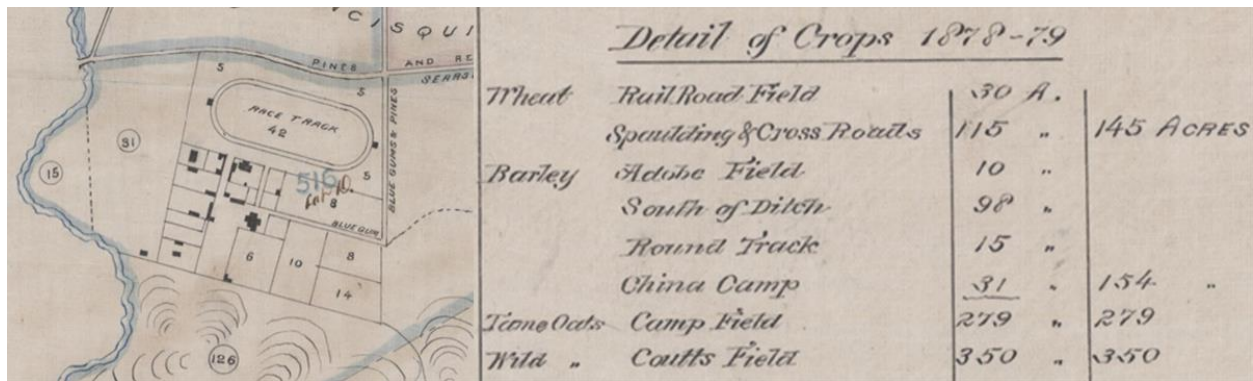 SQUI
PINES AND RE
SEARS
5
5
RACE TRACK
42
31
15
516
5
8
BLUE GUMS & PINES
BLUE GUM
6 10 8
14
126
Detail of Crops 1878-79
Wheat Rail Road Field 30 A.
Spaulding & Cross Roads 115 " 145 ACRES
Barley Adobe Field 10 "
South of Ditch 98 "
Round Track 15 "
China Camp 31 " 154 "
Tame Oats Camp Field 279 " 279
Wild " Coutts Field 350 " 350